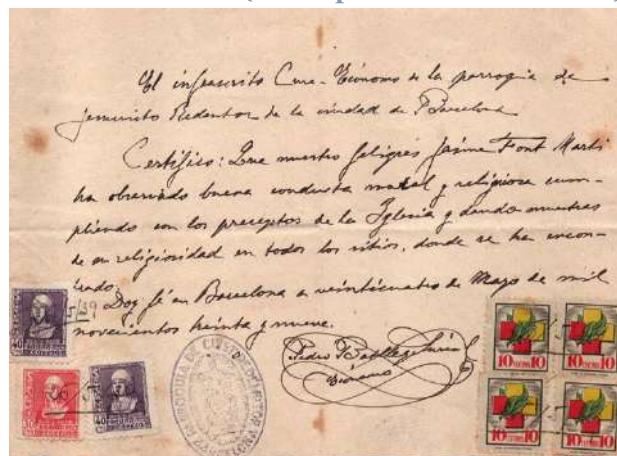 El infrascrito Cura-Ecónomo de la parroquia de
Jesucristo Redentor de la ciudad de Barcelona
Certifico: Que nuestro feligrés Jaime Font Martí
ha observado buena conducta moral y religiosa cum-
pliendo con los preceptos de la Iglesia y dando muestras
de su religiosidad en todos los sitios, donde se ha encon-
trado.
Doy fé en Barcelona a veinticuatro de Mayo de mil
novecientos treinta y nueve.
Pedro
Ecónomo
PARROQUIA DE CRISTO REDENTOR
40
40
30
10 10
10 10
10 10
10 10